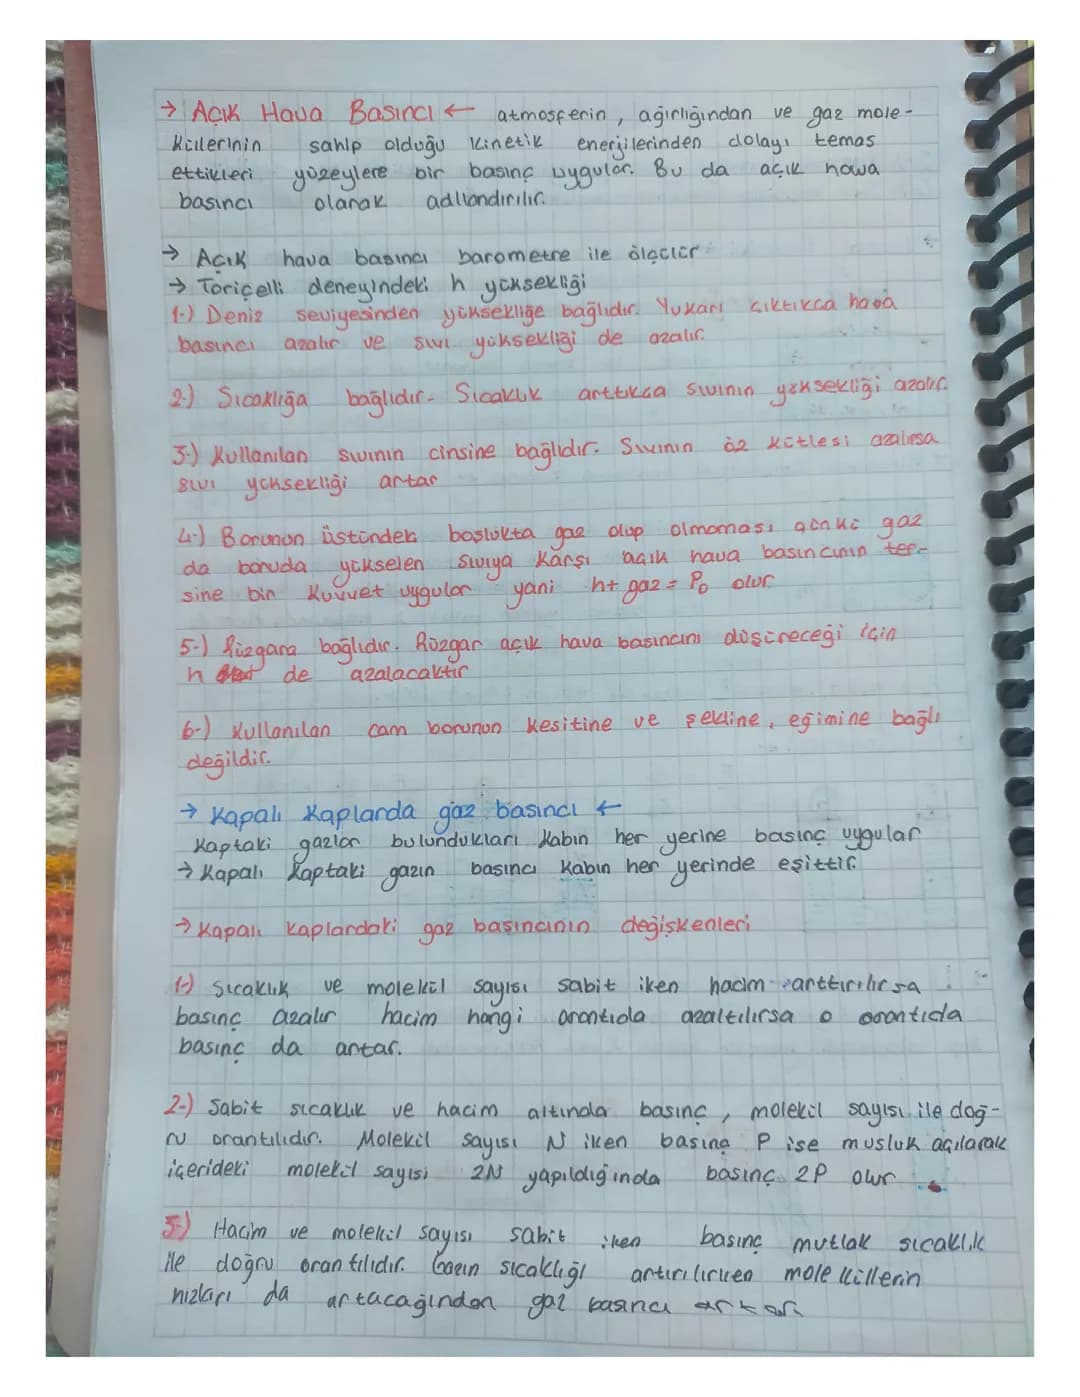 → Açık Hava Basıncı ← atmosferin, ağırlığından ve gaz mole-
küllerinin sahip olduğu kinetik enerjilerinden dolayı temas
ettikleri yüzeylere bir basınç uygular. Bu da açık hawa
basıncı olarak adllandırılır.
→ Açık hava basıncı barometre ile ölçülür
→ Toriçelli deneyindeki h yüksekliği
1-) Deniz seviyesinden yüksekliğe bağlıdır. Yukarı çıktıkca hava
basıncı azalır ve sıvı yüksekliği de azalır.
2-) Sıcaklığa bağlıdır. Sıcaklık arttıkca sıvının yüksekliği azalır.
3-) Kullanılan sıvının cinsine bağlıdır. Sıvının öz kütlesi azalırsa
sıvı yüksekliği artar
4-) Borunun üstündeki boşlukta gaz olup olmaması çünkü gaz
da boruda yükselen sıvıya karşı açık hava basıncının ter-
sine bir kuvvet uygular yani h+ gaz = P₀ olur.
5-) Rüzgara bağlıdır. Rüzgar açık hava basıncını düşüreceği için
h de azalacaktır
6-) Kullanılan cam borunun kesitine ve şekline, eğimine bağlı
değildir.
→ Kapalı Kaplarda gaz basıncı ←
Kaptaki gazlar bulundukları kabın her yerine basınç uygular
→ Kapalı kaptaki gazın basıncı kabın her yerinde eşittir.
→ Kapalı kaplardaki gaz basıncının değişkenleri
1-) Sıcaklık ve molekül sayısı sabit iken hacim arttırılırsa
basınç azalır hacim hangi orantıda azaltılırsa o orantıda
basınç da artar.
2-) Sabit sıcaklık ve hacim altında basınç, molekül sayısı ile doğ-
ru orantılıdır. Molekül sayısı N iken basınç P ise musluk açılarak
içerideki molekül sayısı 2N yapıldığında basınç 2P olur
3-) Hacim ve molekül sayısı sabit iken basınç mutlak sıcaklık
ile doğru orantılıdır. Gazın sıcaklığı artırılırken moleküllerin
hızları da artacağından gaz basıncı artar